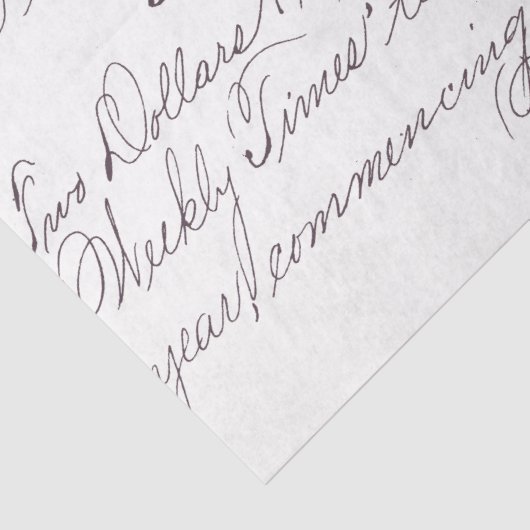 Two Dollars
Weekly Times'
year, commencing